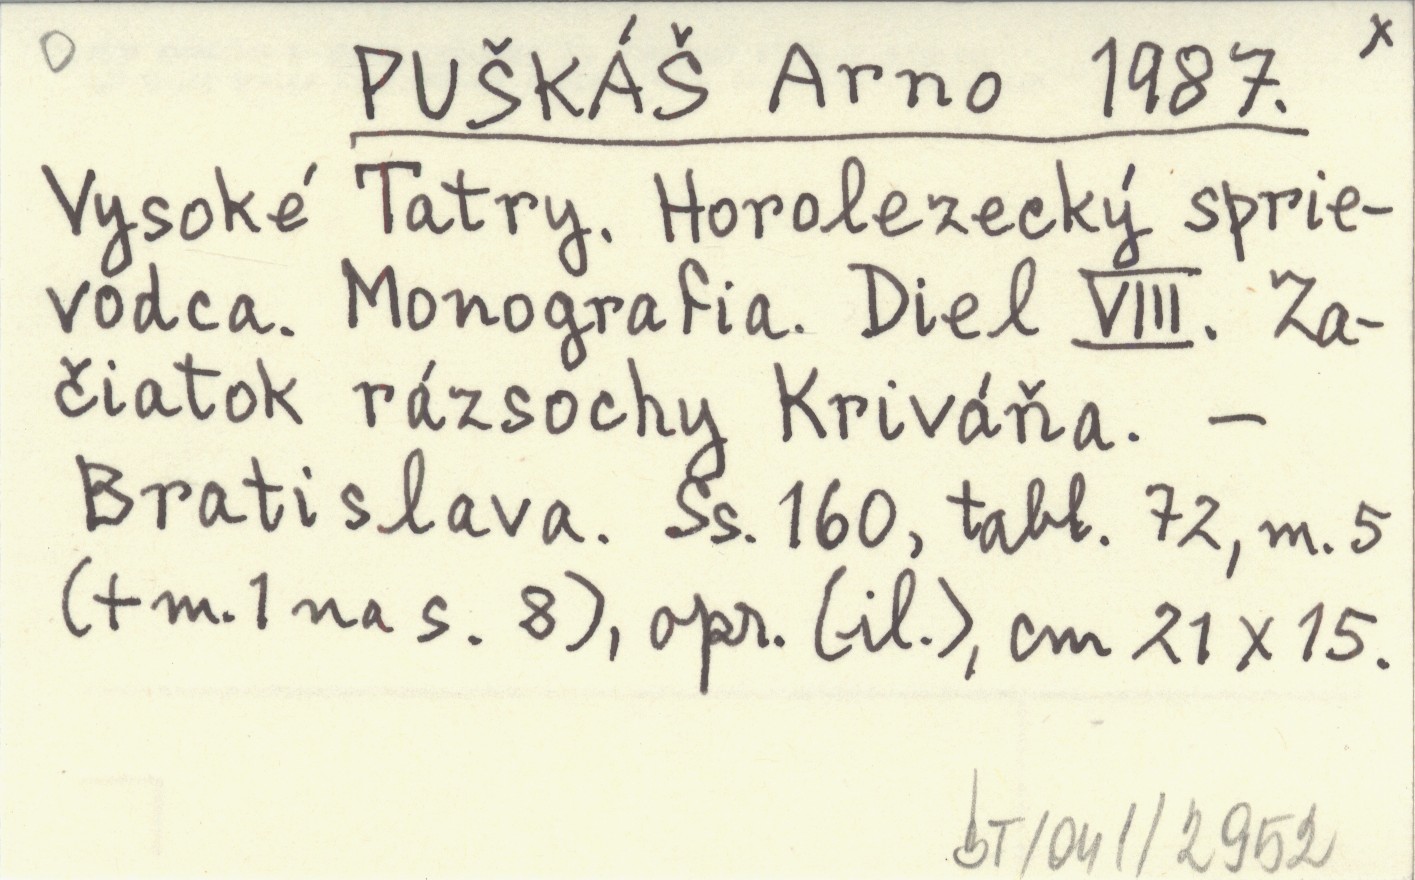 O PUŠKÁŠ Arno 1987. x
Vysoké Tatry. Horolezecký sprie-
vodca. Monografia. Diel VIII. Za-
čiatok rázsochy Kriváňa. —
Bratislava. Ss. 160, tabl. 72, m. 5
(+ m. 1 na s. 8), opr. (il.), cm 21 x 15.
bT/041/2952